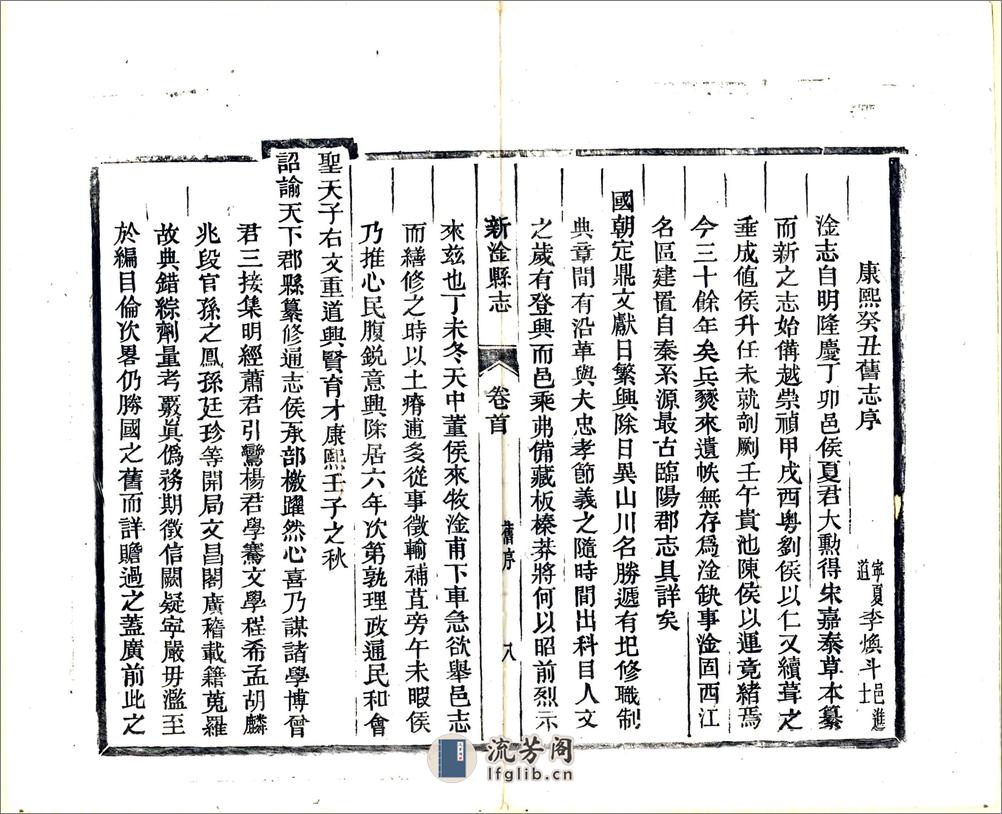 康熙癸丑舊志序
寧夏道李煥斗邑進士
淦志自明隆慶丁卯邑侯夏君大勲得朱嘉泰草本纂
而新之志始備越崇禎甲戌西粵劉侯以仁又續葺之
垂成值侯升任未就剞劂壬午貴池陳侯以運竟緒焉
今三十餘年矣兵燹來遺帙無存爲淦缺事淦固西江
名區建置自秦系源最古臨陽郡志具詳矣
國朝定鼎文獻日繁興除日異山川名勝遞有圯修職制
典章間有沿革與夫忠孝節義之隨時間出科目人文
之歲有登興而邑乘弗備藏板榛莽將何以昭前烈示
新淦縣志 卷首 舊序 八
來兹也丁未冬天中董侯來牧淦甫下車急欲舉邑志
而繕修之時以土瘠逋多從事徵輸補苴旁午未暇侯
乃推心民腹銳意興除居六年次第孰理政通民和會
聖天子右文重道興賢育才康熙壬子之秋
詔諭天下郡縣纂修通志侯承部檄躍然心喜乃謀諸學博曾
君三接集明經蕭君引鸞楊君學騫文學程希孟胡麟
兆段官孫之鳳孫廷珍等開局文昌閣廣稽載籍蒐羅
故典錯綜劑量考覈眞僞務期徵信闕疑寧嚴毋濫至
於編目倫次畧仍勝國之舊而詳贍過之蓋廣前此之
流芳阁
lfglib.cn